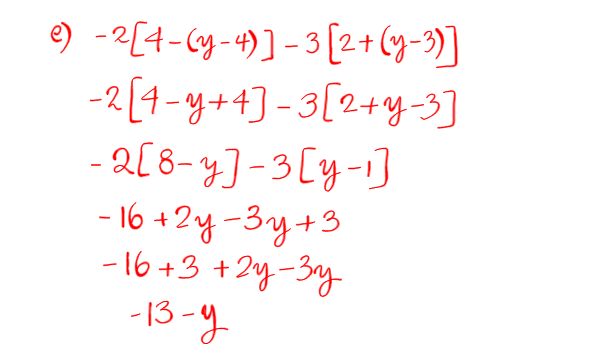 e) -2[4-(y-4)]-3[2+(y-3)]
-2[4-y+4]-3[2+y-3]
-2[8-y]-3[y-1]
-16+2y-3y+3
-16+3+2y-3y
-13-y